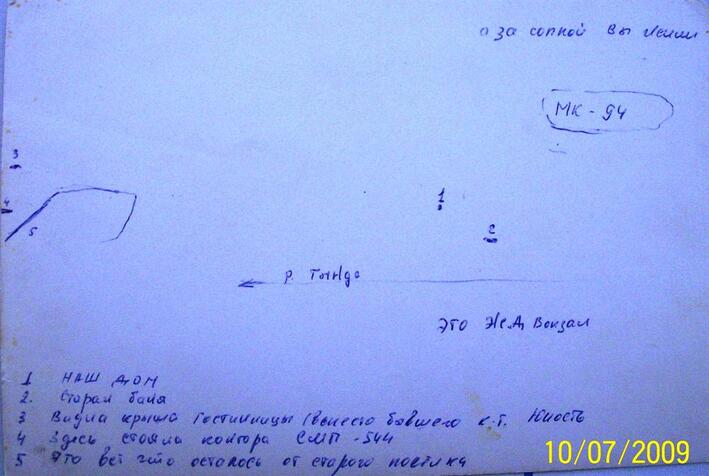 а за сопкой вы жили
МК-94
3
1
4
5
2
р. Тында
это Ж.Д. Вокзал
1 НАШ ДОМ
2. Старая баня
3 Видна крыша Гостинницы (вместо бывшего к.т. Юность
4 Здесь стояла контора СМП-544
5 Это всё что осталось от старого мостика
10/07/2009